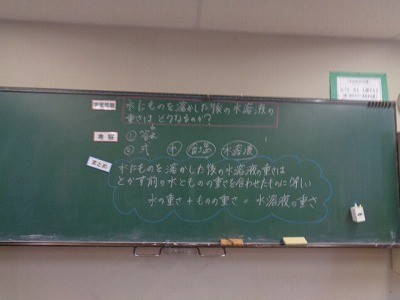 学習問題
水にものを溶かした後の水溶液の
重さは どうなるのか?
考察
① 答え
② 式 水 食塩 水溶液
まとめ
水にものを溶かした後の水溶液の重さは
とかす前の水とものの重さを合わせたものに等しい
水の重さ + ものの重さ = 水溶液の重さ